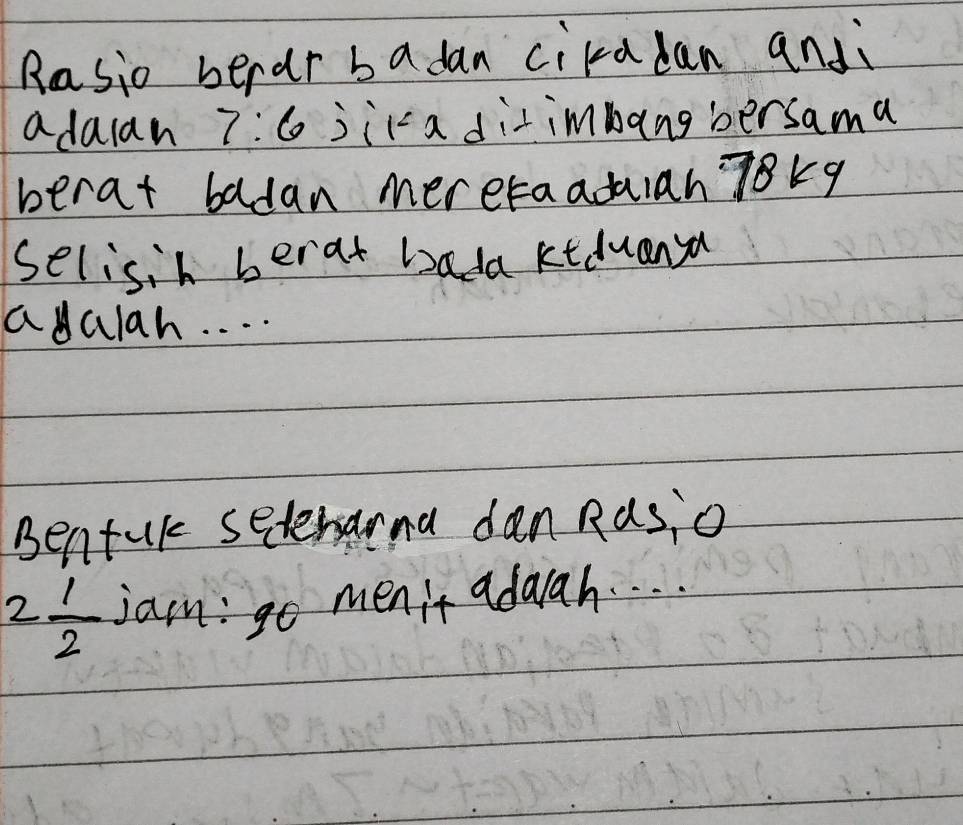 Rasio berat badan cika dan andi
adalah 7:6 jika ditimbang bersama
berat badan mereka adalah 78 kg
selisih berat bada keduanya
adalah....
Bentuk sederhana dan Rasio
2 1/2 jam : 90 menit adalah....